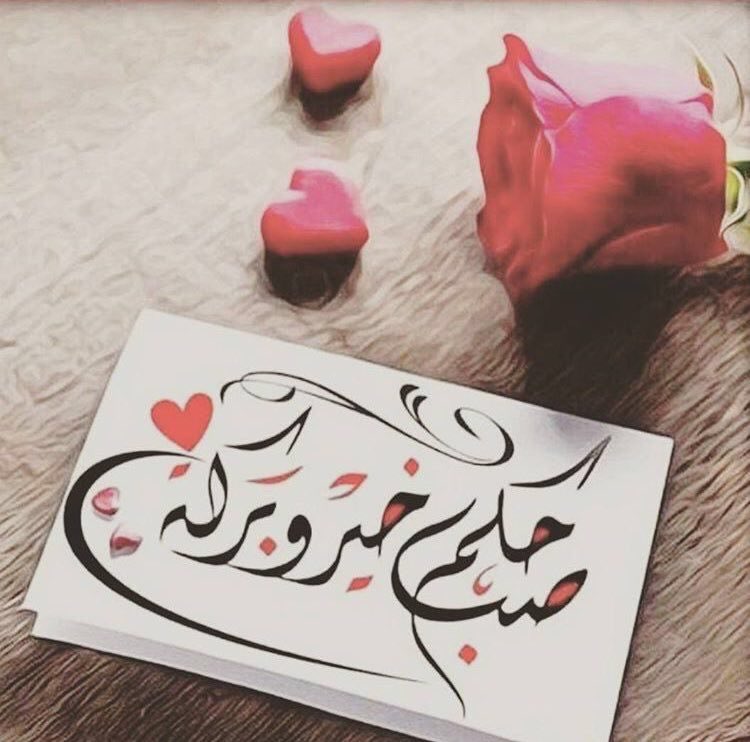 صباحكم خير وبركة